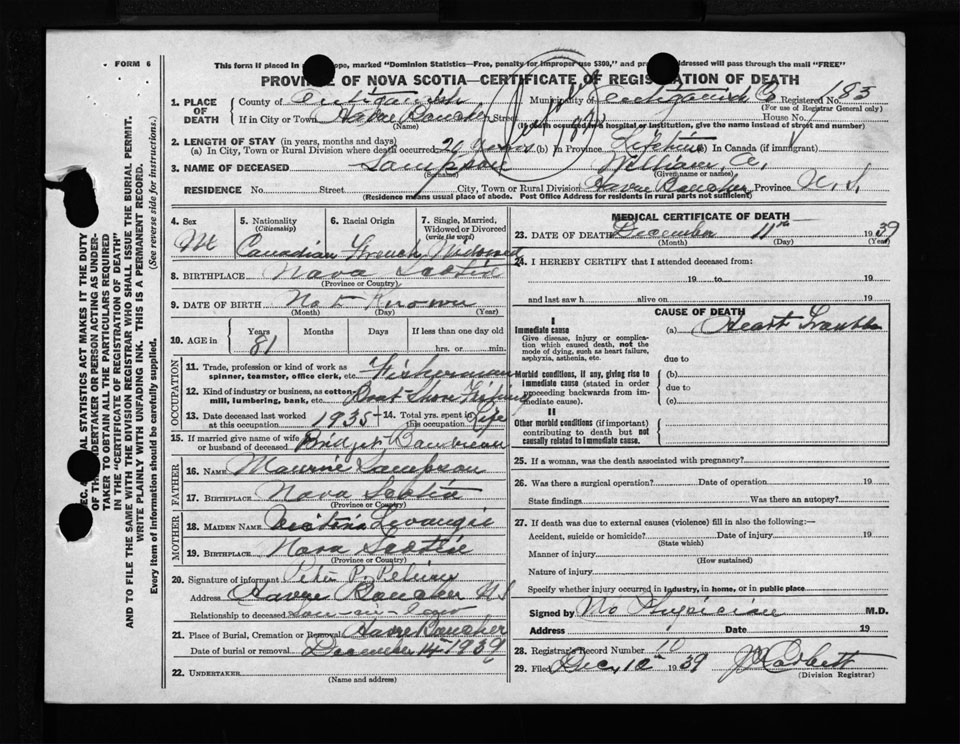 FORM 6
This form if placed in ope, marked "Dominion Statistics—Free, penalty for improper use $300," and pr addressed will pass through the mail "FREE"
PROVINCE OF NOVA SCOTIA—CERTIFICATE OF REGISTRATION OF DEATH
1. PLACE OF DEATH County of Antigonish Municipality of Antigonish Co Registered No. 183
(For use of Registrar General only)
If in City or Town Havre Boucher Street House No.
(Name) (If death occurred in a hospital or institution, give the name instead of street and number)
2. LENGTH OF STAY (in years, months and days)
(a) In City, Town or Rural Division where death occurred (b) In Province Lifetime (c) In Canada (if immigrant)
3. NAME OF DECEASED Sampson William A.
(Surname) (Given name or names)
RESIDENCE No. Street City, Town or Rural Division Havre Boucher Province N. S.
(Residence means usual place of abode. Post Office Address for residents in rural parts not sufficient)
4. Sex M
5. Nationality (Citizenship) Canadian
6. Racial Origin French
7. Single, Married, Widowed or Divorced (write the word) Widowed
8. BIRTHPLACE Nova Scotia
(Province or Country)
9. DATE OF BIRTH Not Known
(Month) (Day) (Year)
10. AGE in Years 81 Months Days If less than one day old hrs. or min.
OCCUPATION
11. Trade, profession or kind of work as spinner, teamster, office clerk, etc. Fisherman
12. Kind of industry or business, as cotton-mill, lumbering, bank, etc. Boat Shore Fishing
13. Date deceased last worked at this occupation 1935
14. Total yrs. spent in this occupation Life
15. If married give name of wife or husband of deceased Bridget Boudreau
FATHER
16. NAME Sampson
17. BIRTHPLACE Nova Scotia
(Province or Country)
MOTHER
18. MAIDEN NAME Levangie
19. BIRTHPLACE Nova Scotia
(Province or Country)
20. Signature of informant Peter P.
Address Havre Boucher N S
Relationship to deceased Son-in-law
21. Place of Burial, Cremation or Removal Havre Boucher
Date of burial or removal December 14th 1939
22. UNDERTAKER
(Name and address)
MEDICAL CERTIFICATE OF DEATH
23. DATE OF DEATH December 11th 1939
(Month) (Day) (Year)
24. I HEREBY CERTIFY that I attended deceased from:
19 to 19
and last saw h alive on 19
CAUSE OF DEATH
I
Immediate cause (a) Heart Trouble
Give disease, injury or complication which caused death, not the mode of dying, such as heart failure, asphyxia, asthenia, etc.
due to
Morbid conditions, if any, giving rise to immediate cause (stated in order proceeding backwards from immediate cause).
(b)
due to
(c)
II
Other morbid conditions (if important) contributing to death but not causally related to immediate cause.
25. If a woman, was the death associated with pregnancy?
26. Was there a surgical operation? Date of operation 19
State findings Was there an autopsy?
27. If death was due to external causes (violence) fill in also the following:—
Accident, suicide or homicide? Date of injury 19
(State which)
Manner of injury
(How sustained)
Nature of injury
Specify whether injury occurred in industry, in home, or in public place
Signed by No Physician M.D.
Address Date 19
28. Registrar's Record Number 10
29. Filed Dec, 1939 Corbett
(Division Registrar)
AL STATISTICS ACT MAKES IT THE DUTY
OF THE UNDERTAKER OR PERSON ACTING AS UNDER-
TAKER TO OBTAIN ALL THE PARTICULARS REQUIRED
IN THE "CERTIFICATE OF REGISTRATION OF DEATH"
AND TO FILE THE SAME WITH THE DIVISION REGISTRAR WHO SHALL ISSUE THE BURIAL PERMIT.
WRITE PLAINLY WITH UNFADING INK. THIS IS A PERMANENT RECORD.
Every item of information should be carefully supplied. (See reverse side for instructions.)